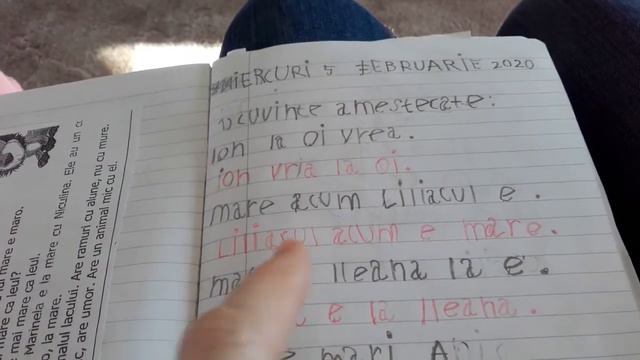 MIERCURI 5 FEBRUARIE 2020
1) cuvince amestecate:
ion la oi vrea.
ion vria la oi.
mare acum Liliacul e .
Liliacul acum e mare.
Ileana la e .
e la Ileana.
mari
mare e maro.
ca leul?
mai mare ca leul.
Marinela e la mare cu Niculina. Ele au un c
o, la mare.
malul lacului. Are ramuri cu alune, nu cu mure.
c, are umor. Are un animal mic cu el.